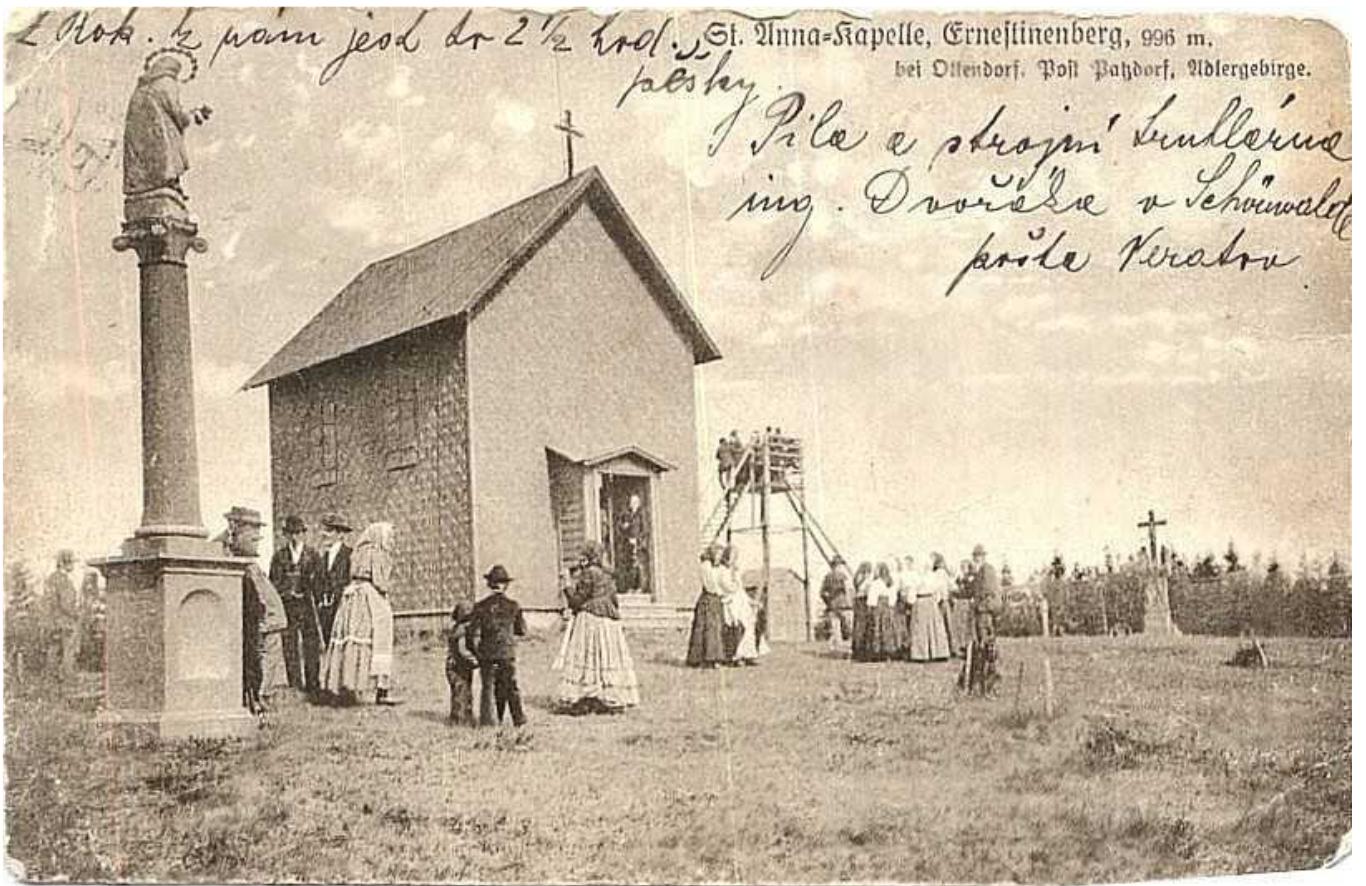 Z Rok. k nám jest to 2 ½ hod.
pěšky.
St. Anna-Kapelle, Erneſtinenberg, 996 m.
bei Ottendorf. Poſt Batzdorf, Adlergebirge.
Pila a strojní truhlárna
ing. Dvořáka v Schönwald
pošta Neratov